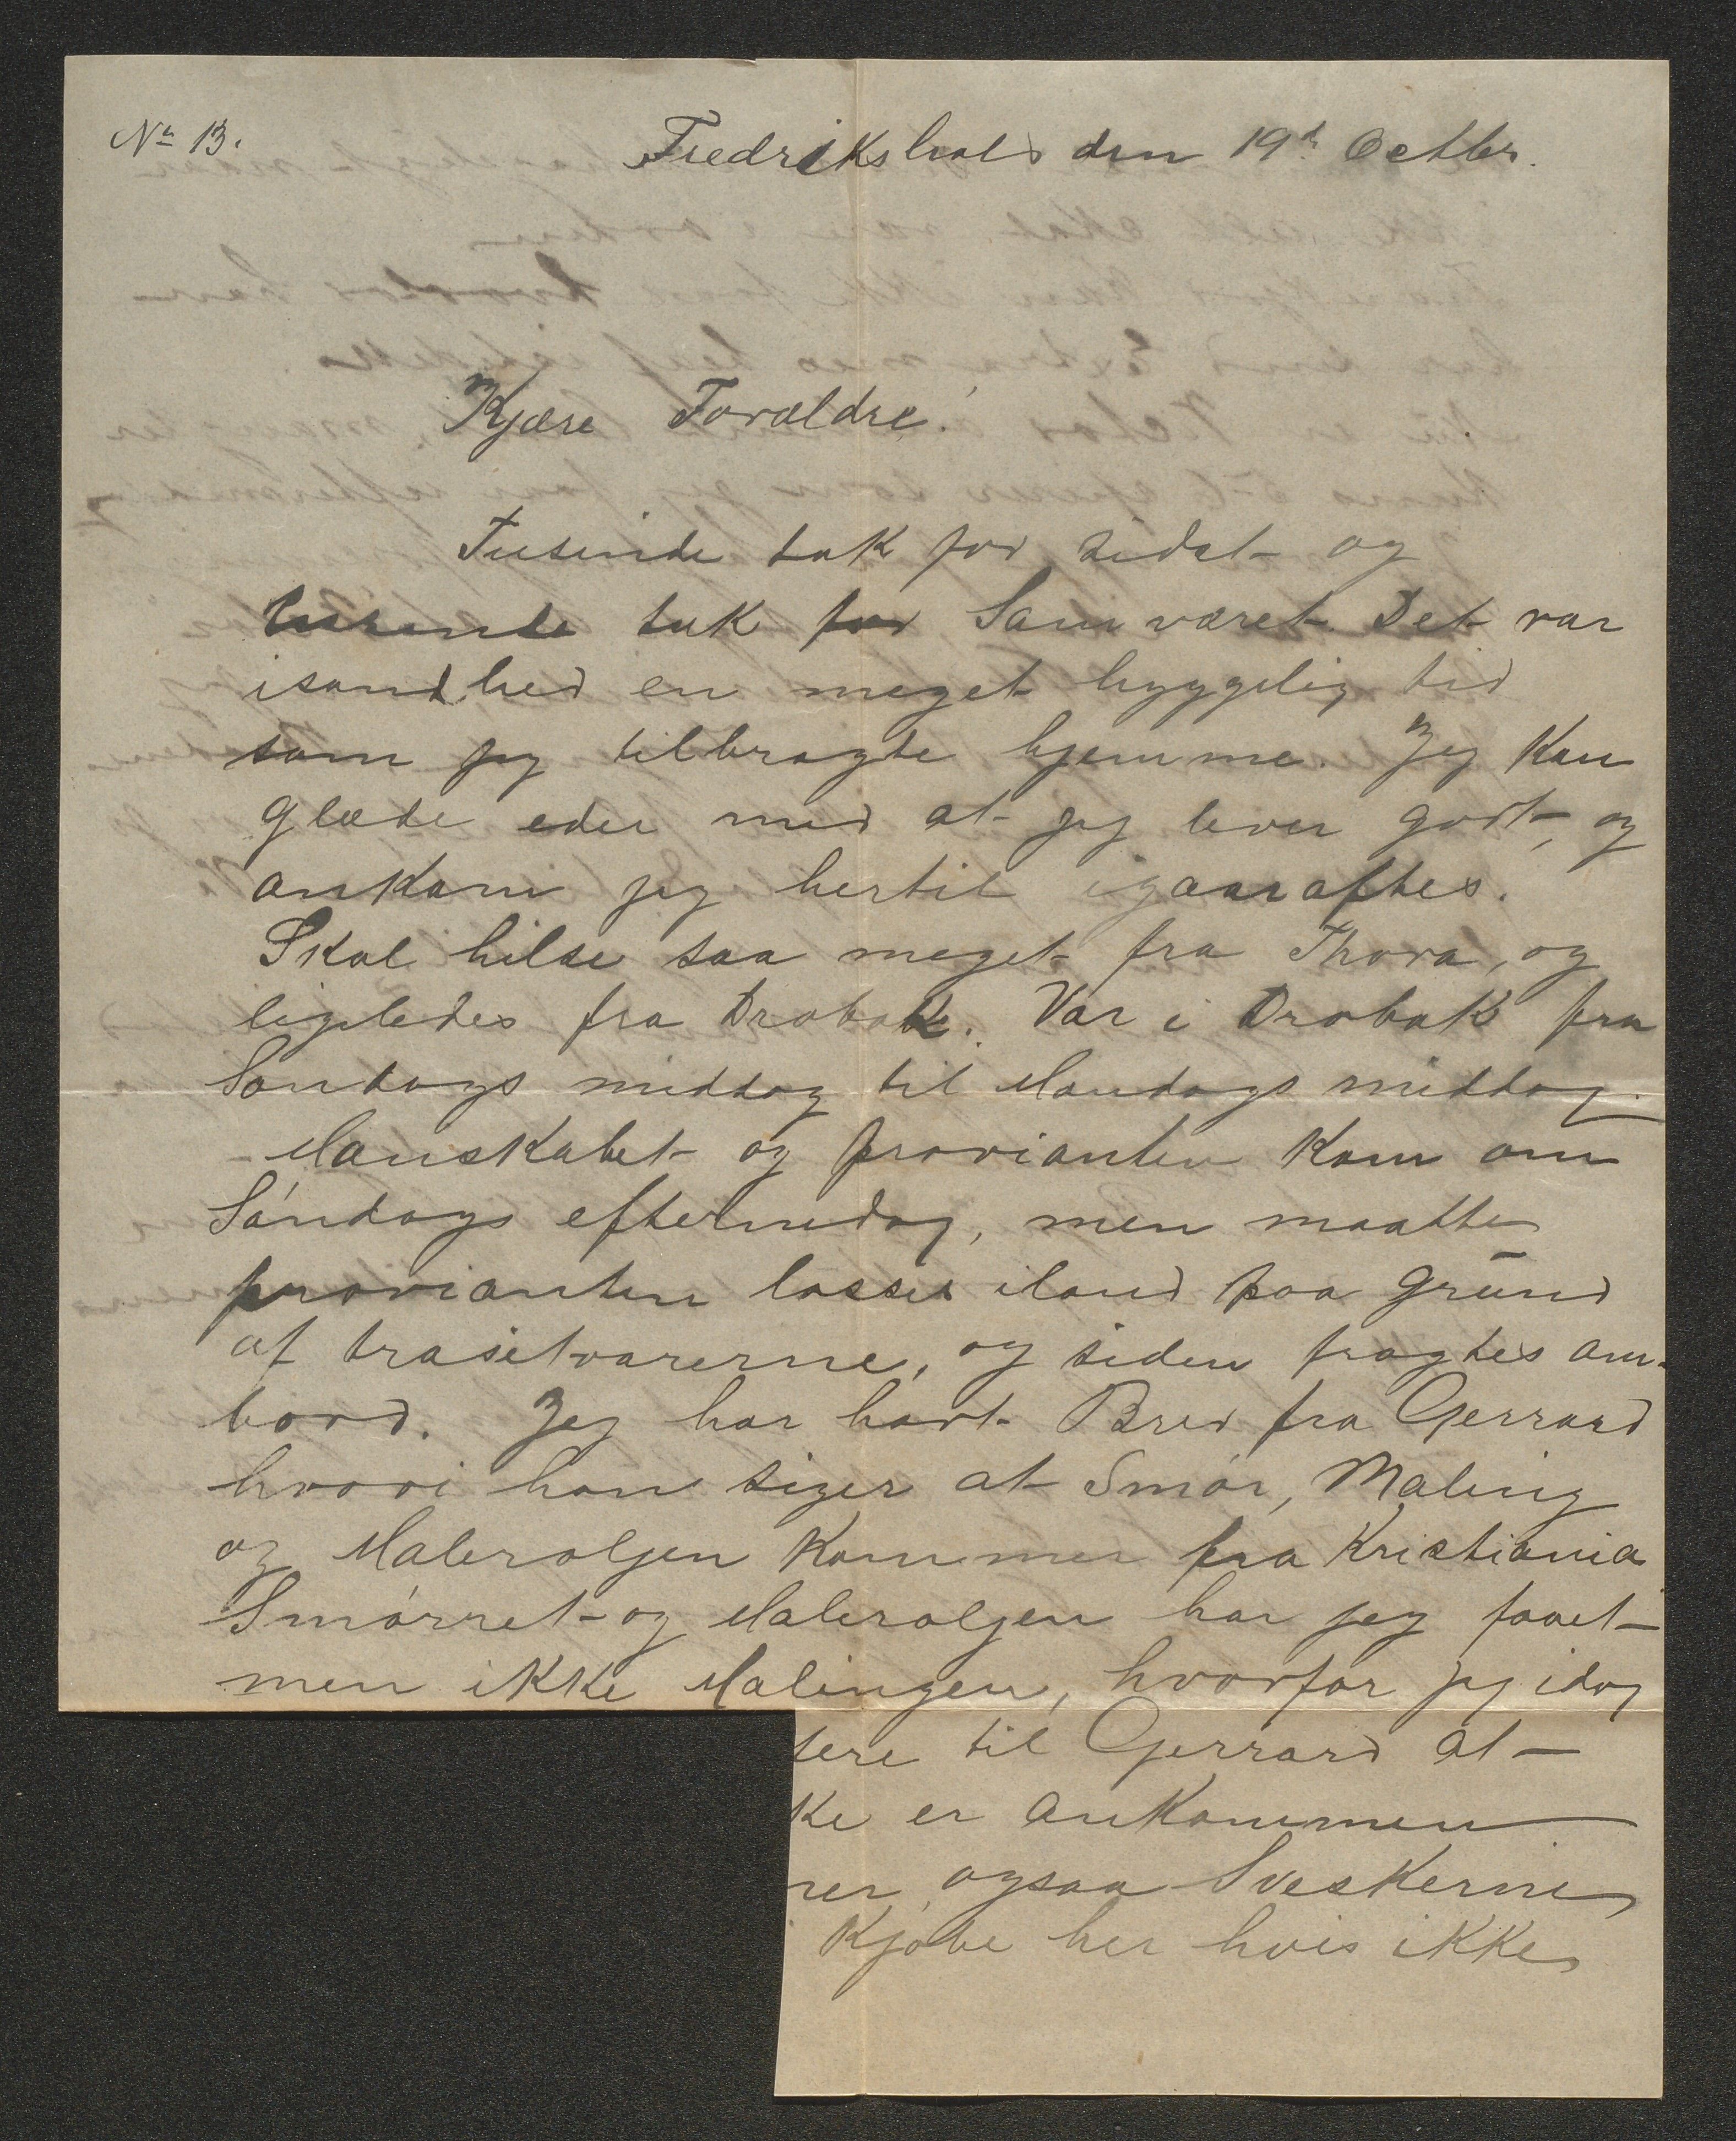 No 13.
Fredrikshald den 19d Octbr.
Kjære Forældre!
Tusinde tak for sidst og
tusende tak for Samværet. Det var
isandhed en meget hyggelig tid
som jeg tilbragte hjemme. Jeg kan
glæde eder med at jeg lever godt, og
ankom jeg hertil igaaraftes.
Skal hilse saa meget fra Thora, og
ligeledes fra Drobak. Var i Drobak fra
Søndags middag til Mandags middag.
Manskabet og provianten kom om
Søndags eftermidag, men maatte
provianten losses iland paa Grund
af trasitvarerne, og siden fragtes om-
bord. Jeg har havt Brev fra Gerrard
hvori han siger at Smør, Maling
og Maleroljen kommer fra Kristiania
Smørret og Maleroljen har jeg faaet
men ikke Malingen, hvorfor jeg idag
tere til Gerrard at
ke er ankommen
rer ogsaa Sveskerne
Kjøbe her hvis ikke